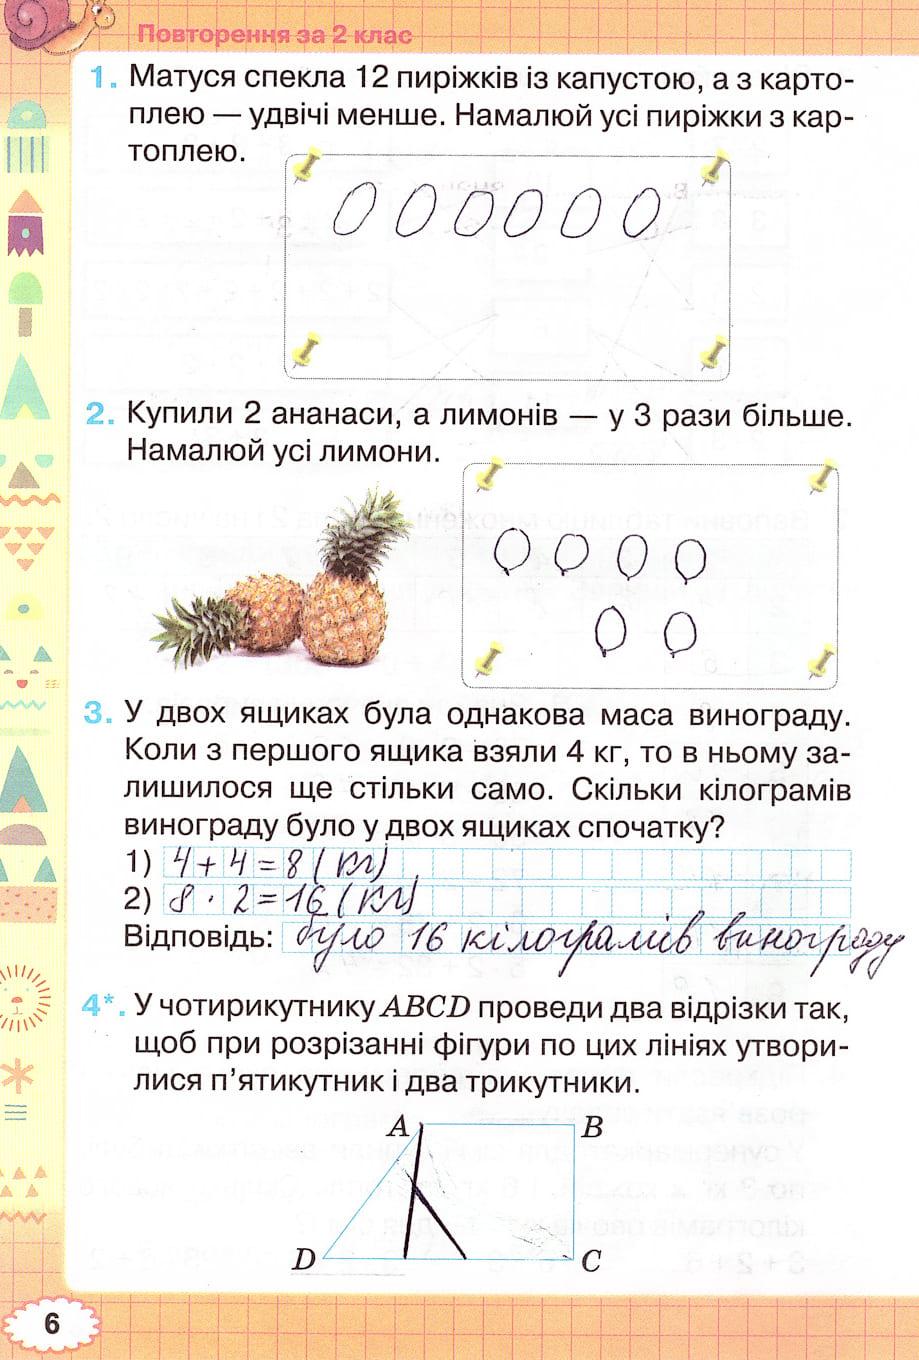 Повторення за 2 клас
1. Матуся спекла 12 пиріжків із капустою, а з карто-
плею — удвічі менше. Намалюй усі пиріжки з кар-
топлею.
2. Купили 2 ананаси, а лимонів — у 3 рази більше.
Намалюй усі лимони.
3. У двох ящиках була однакова маса винограду.
Коли з першого ящика взяли 4 кг, то в ньому за-
лишилося ще стільки само. Скільки кілограмів
винограду було у двох ящиках спочатку?
1) 4+4=8 (кг)
2) 8 · 2=16 (кг)
Відповідь: було 16 кілограмів винограду
4*. У чотирикутнику ABCD проведи два відрізки так,
щоб при розрізанні фігури по цих лініях утвори-
лися п’ятикутник і два трикутники.
A B
D C
6